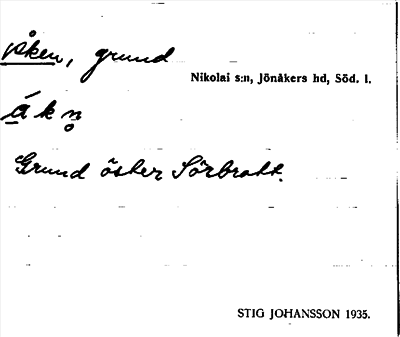 Åken, grund
Nikolai s:n, Jönåkers hd, Söd. l.
ǻ k n̥
Grund öster Sörbrott.
STIG JOHANSSON 1935.